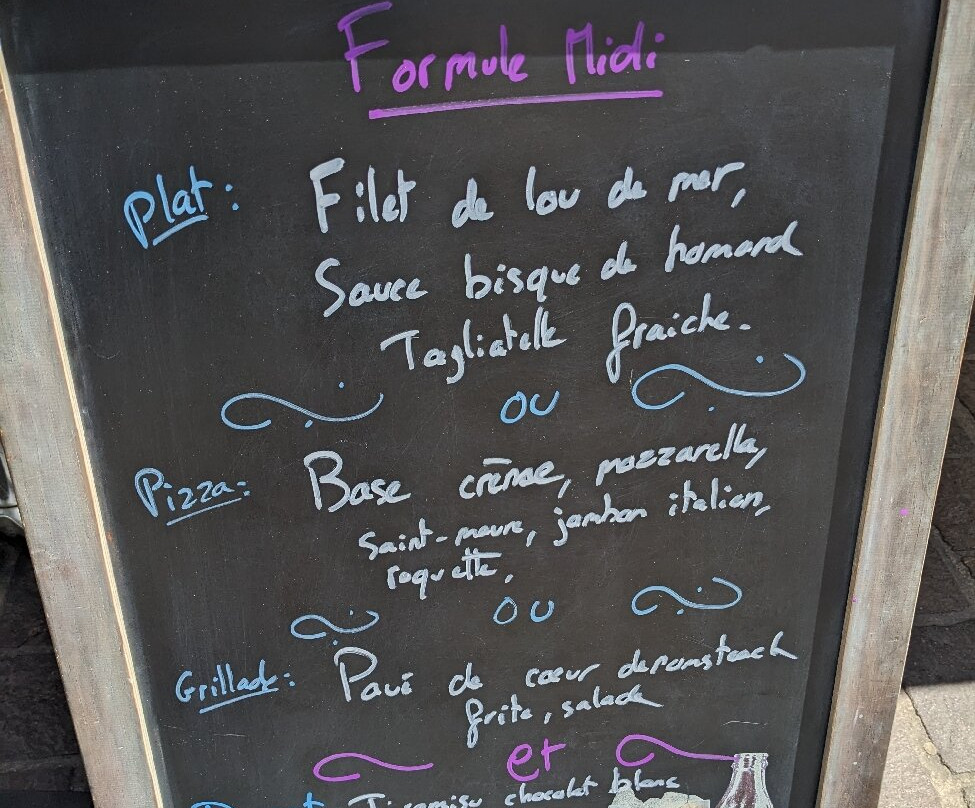 Formule Midi
Plat : Filet de lou de mer,
Sauce bisque de homard
Tagliatelle fraiche.
ou
Pizza : Base crème, mozzarella,
saint-maure, jambon italien,
roquette,
ou
Grillade : Pavé de cœur de romsteack
frite, salade
et
Tiramisu chocolat blanc